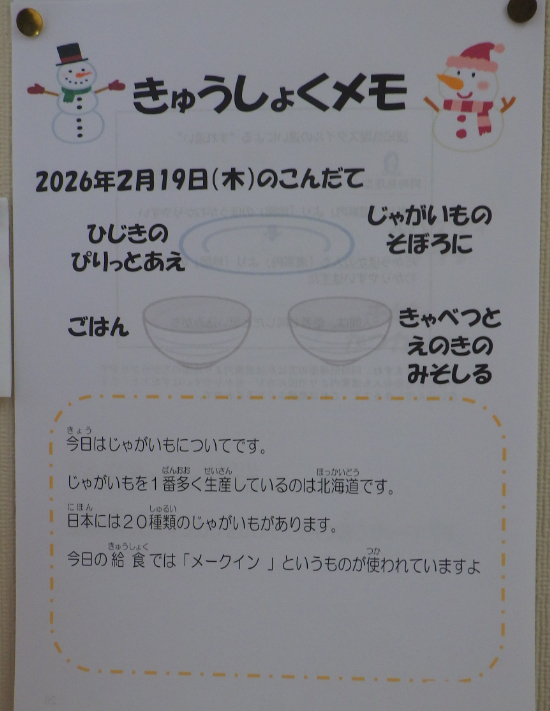 きゅうしょくメモ
2026年2月19日(木)のこんだて
ひじきの
ぴりっとあえ
じゃがいもの
そぼろに
ごはん
きゃべつと
えのきの
みそしる
きょう
今日はじゃがいもについてです。
ばんおお せいさん ほっかいどう
じゃがいもを1番多く生産しているのは北海道です。
にほん しゅるい
日本には20種類のじゃがいもがあります。
きゅうしょく つか
今日の給食では「メークイン」というものが使われていますよ